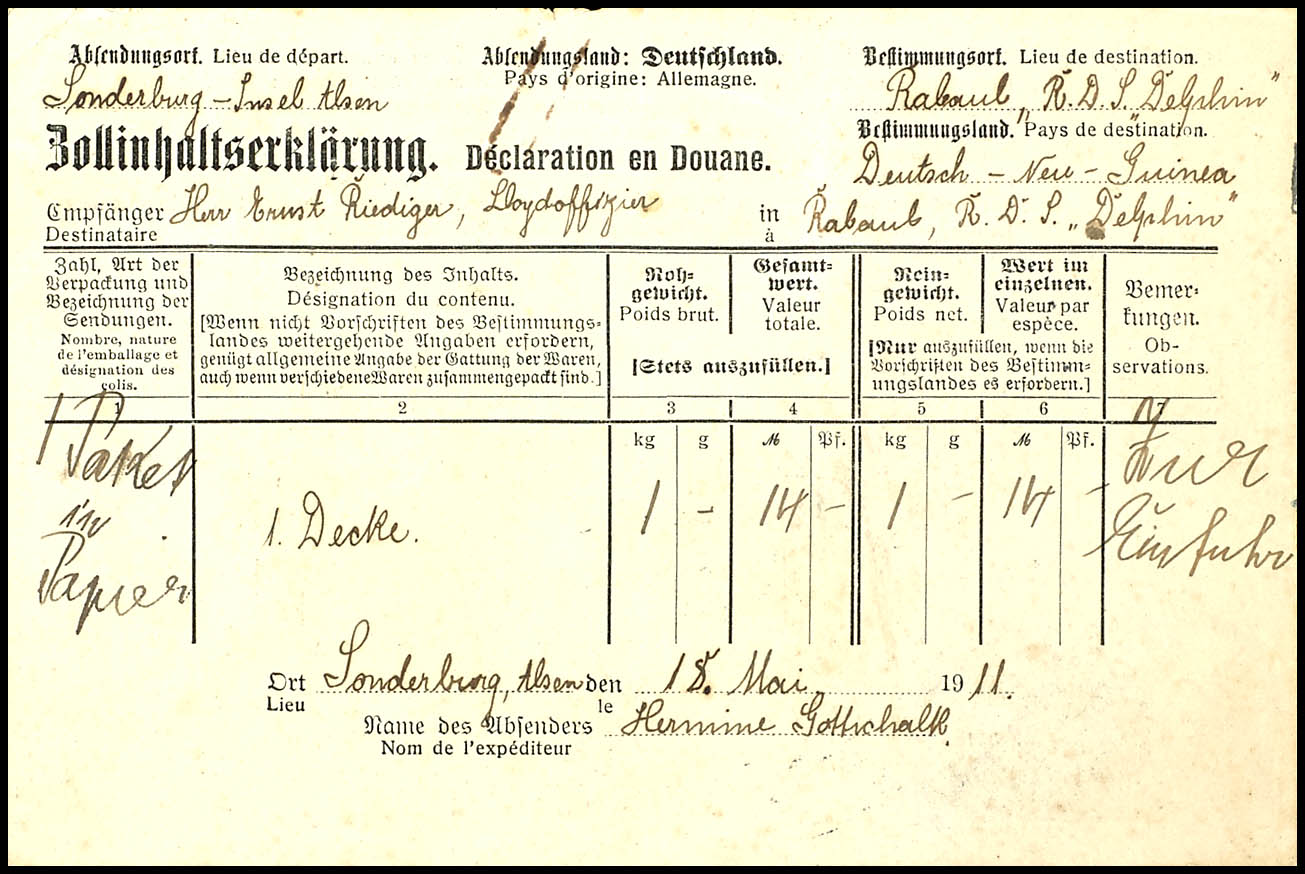 Absendungsort. Lieu de départ.
Sonderburg – Insel Alsen
Absendungsland: Deutschland.
Pays d'origine: Allemagne.
Bestimmungsort. Lieu de destination.
Rabaul „R. D. S. Delphin"
Bestimmungsland. Pays de destination.
Deutsch – Neu – Guinea
Zollinhaltserklärung. Déclaration en Douane.
Empfänger Herr Ernst Riediger, Lloydoffizier in Rabaul, R. D. S. „Delphin"
Destinataire à
Zahl, Art der
Verpackung und
Bezeichnung der
Sendungen.
Nombre, nature
de l'emballage et
désignation des
colis.
Bezeichnung des Inhalts.
Désignation du contenu.
[Wenn nicht Vorschriften des Bestimmungs-
landes weitergehende Angaben erfordern,
genügt allgemeine Angabe der Gattung der Waren,
auch wenn verschiedene Waren zusammengepackt sind.]
Roh-
gewicht.
Poids brut.
Gesamt-
wert.
Valeur
totale.
[Stets auszufüllen.]
Rein-
gewicht.
Poids net.
Wert im
einzelnen.
Valeur par
espèce.
[Nur auszufüllen, wenn die
Vorschriften des Bestimm-
ungslandes es erfordern.]
Bemer-
kungen.
Ob-
servations.
1 2 3 4 5 6 7
kg g M Pf. kg g M Pf.
1 Paket
in
Papier
1. Decke.
1 – 14 – 1 – 14 –
Zur
Einfuhr
Ort Sonderburg, Alsen den 18. Mai 1911.
Lieu le
Name des Absenders Hermine Gottschalk
Nom de l'expéditeur